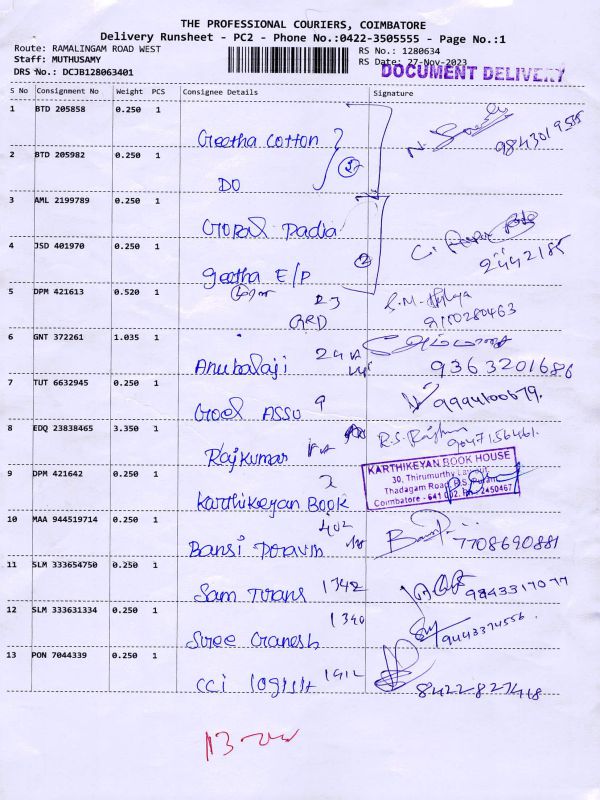 THE PROFESSIONAL COURIERS, COIMBATORE
Delivery Runsheet - PC2 - Phone No.:0422-3505555 - Page No.:1
Route: RAMALINGAM ROAD WEST
RS No.: 1280634
Staff: MUTHUSAMY
RS Date: 27-Nov-2023
DRS No.: DCJB128063401
DOCUMENT DELIVERY
S No Consignment No Weight PCS Consignee Details Signature
1 BTD 205858 0.250 1
Geetha Cotton
9843019555
2 BTD 205982 0.250 1
DO
3 AML 2199789 0.250 1
Gopal Padia
4 JSD 401970 0.250 1
geetha E/P
2442185
5 DPM 421613 0.520 1
23
GRD
9150280463
6 GNT 372261 1.035 1
Anubalaji
9363201686
7 TUT 6632945 0.250 1
Goel Assu 9
9994100679.
8 EDQ 23838465 3.350 1
Rajkumar
9047156461.
9 DPM 421642 0.250 1
Karthikeyan Book
KARTHIKEYAN BOOK HOUSE
30, Thirumurthy Layout,
Thadagam Road, R.S. Puram
Coimbatore - 641 002. 2450467
10 MAA 944519714 0.250 1
402
Bansi
7708690881
11 SLM 333654750 0.250 1
Sam Trans 1342
9843317077
12 SLM 333631334 0.250 1
1340
Sree Ganesh
9443374556.
13 PON 7044339 0.250 1
CCI logist 1912
8422827418
13